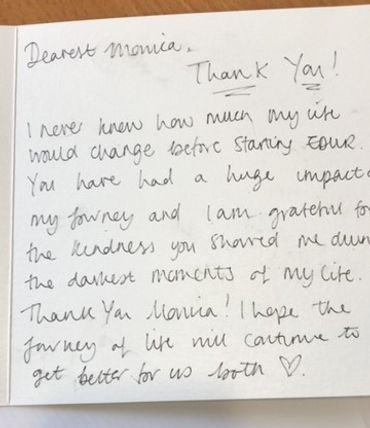 Dearest Monica,
Thank You!
I never knew how much my life
would change before starting EDUR.
You have had a huge impact
my journey and I am grateful for
the kindness you showed me
the darkest moments of my life.
Thank You Monica! I hope the
journey of life will continue to
get better for us both ♡.